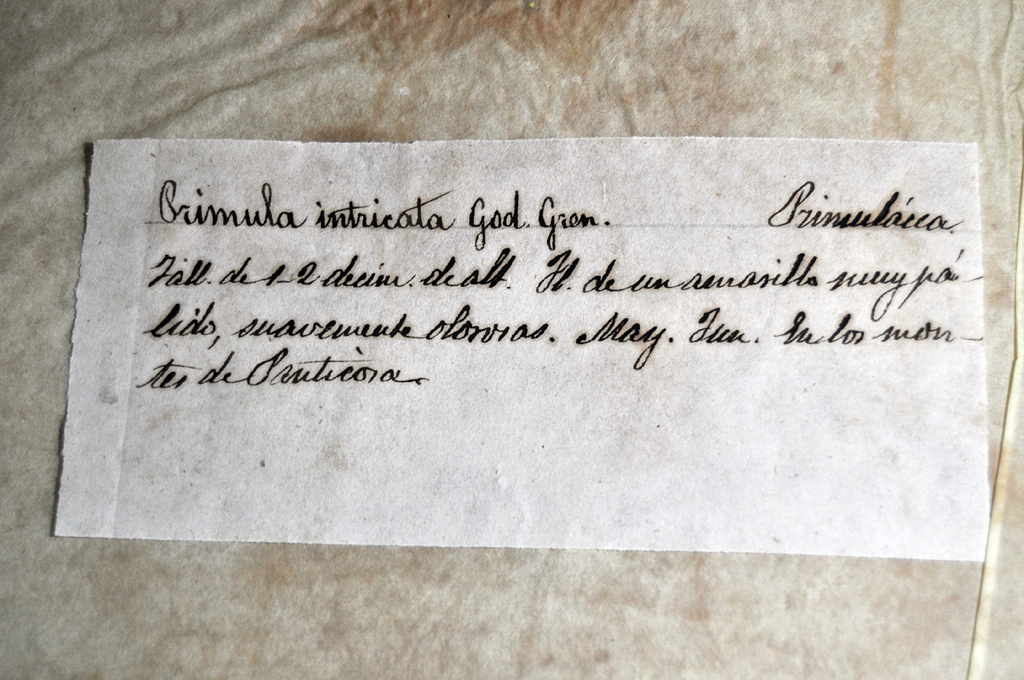 Primula intricata God. Gren. Primulácea.
Tall. de 1-2 decim. de alt. Fl. de un amarillo muy pá-
lido, suavemente olorosas. May. Jun. En los mon-
tes de Panticosa.